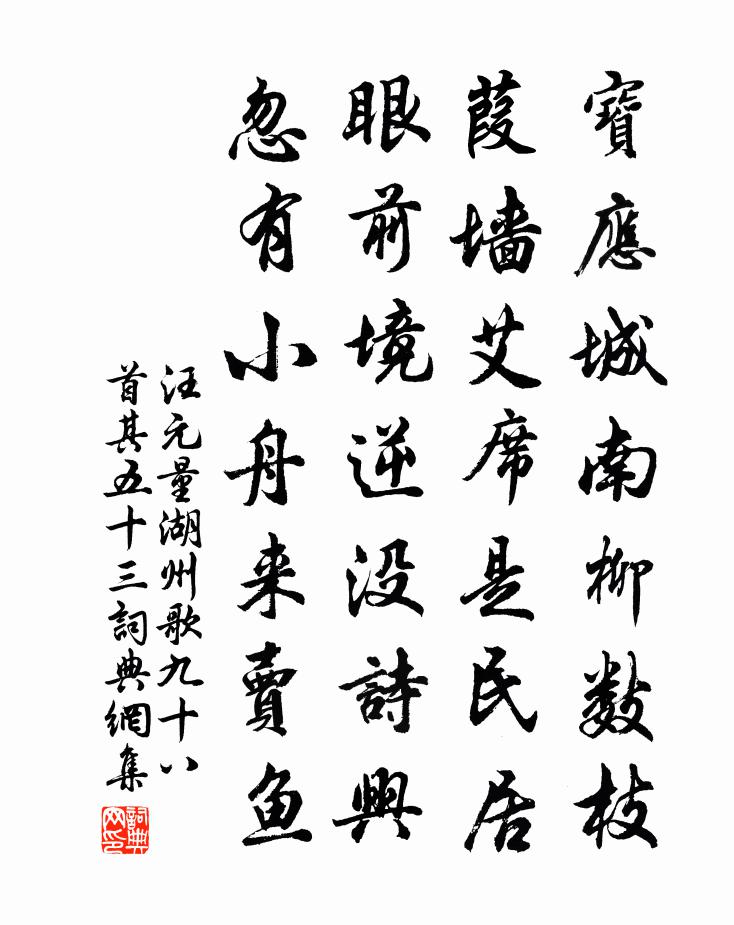 寶應城南柳數枝
葭墙艾席是民居
眼前境逆没詩興
忽有小舟来賣鱼
汪元量湖州歌九十八
首其五十三詞典網集
詞典网印